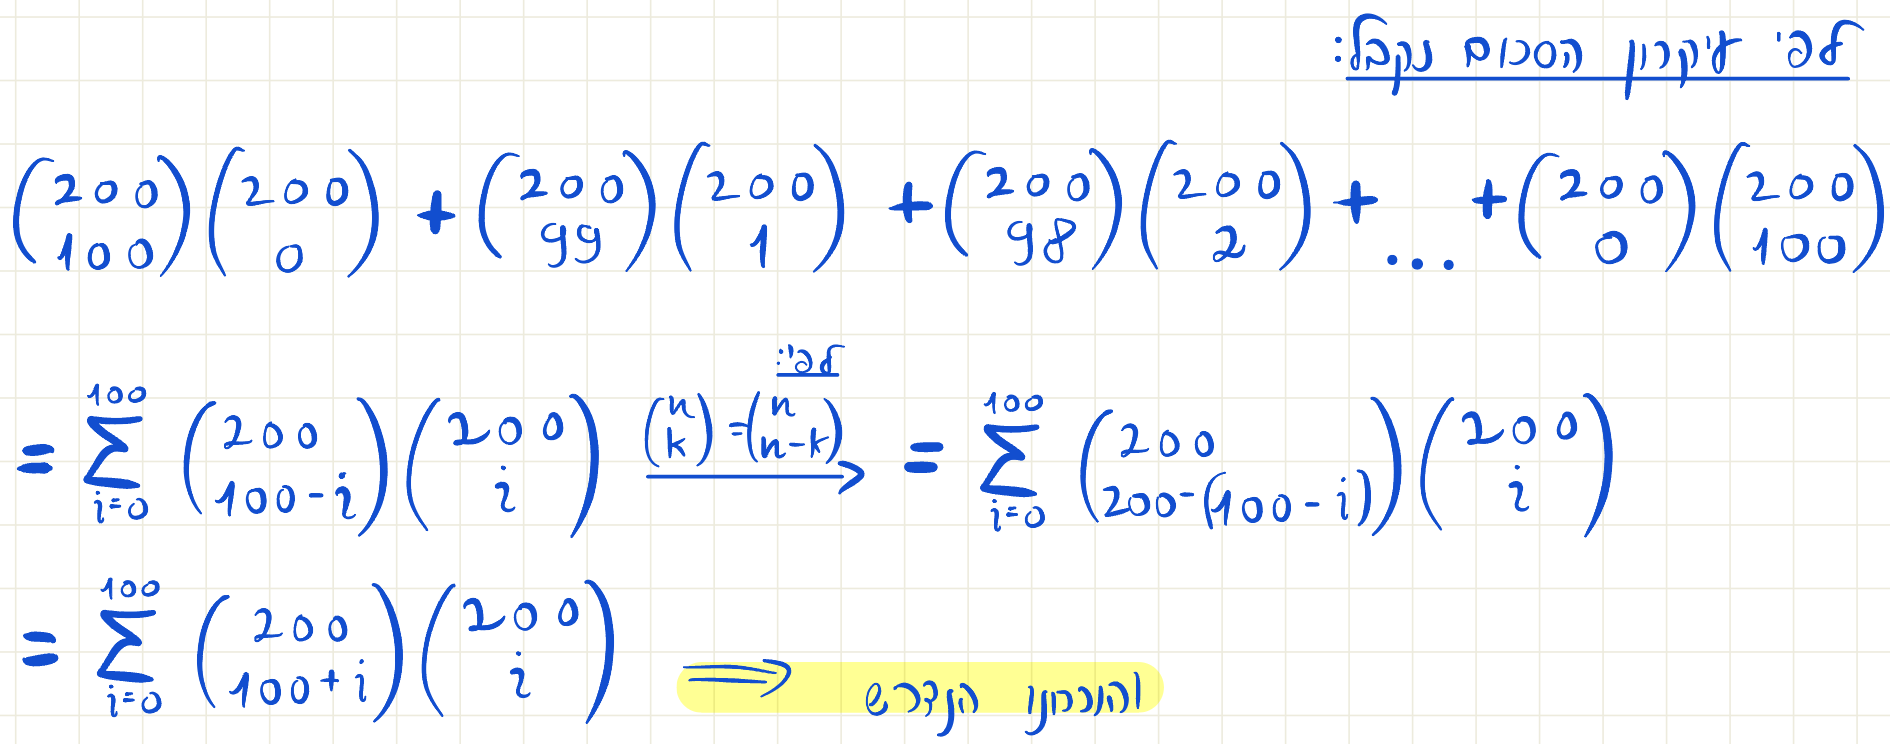 לפי עיקרון הסכום נקבל:
(200 100)(200 0) + (200 99)(200 1) + (200 98)(200 2) + ... + (200 0)(200 100)
לפי:
= ∑_{i=0}^{100} (200 100-i)(200 i) (n k) = (n n-k) → = ∑_{i=0}^{100} (200 200-(100-i))(200 i)
= ∑_{i=0}^{100} (200 100+i)(200 i) ⟹ והוכחנו הנדרש